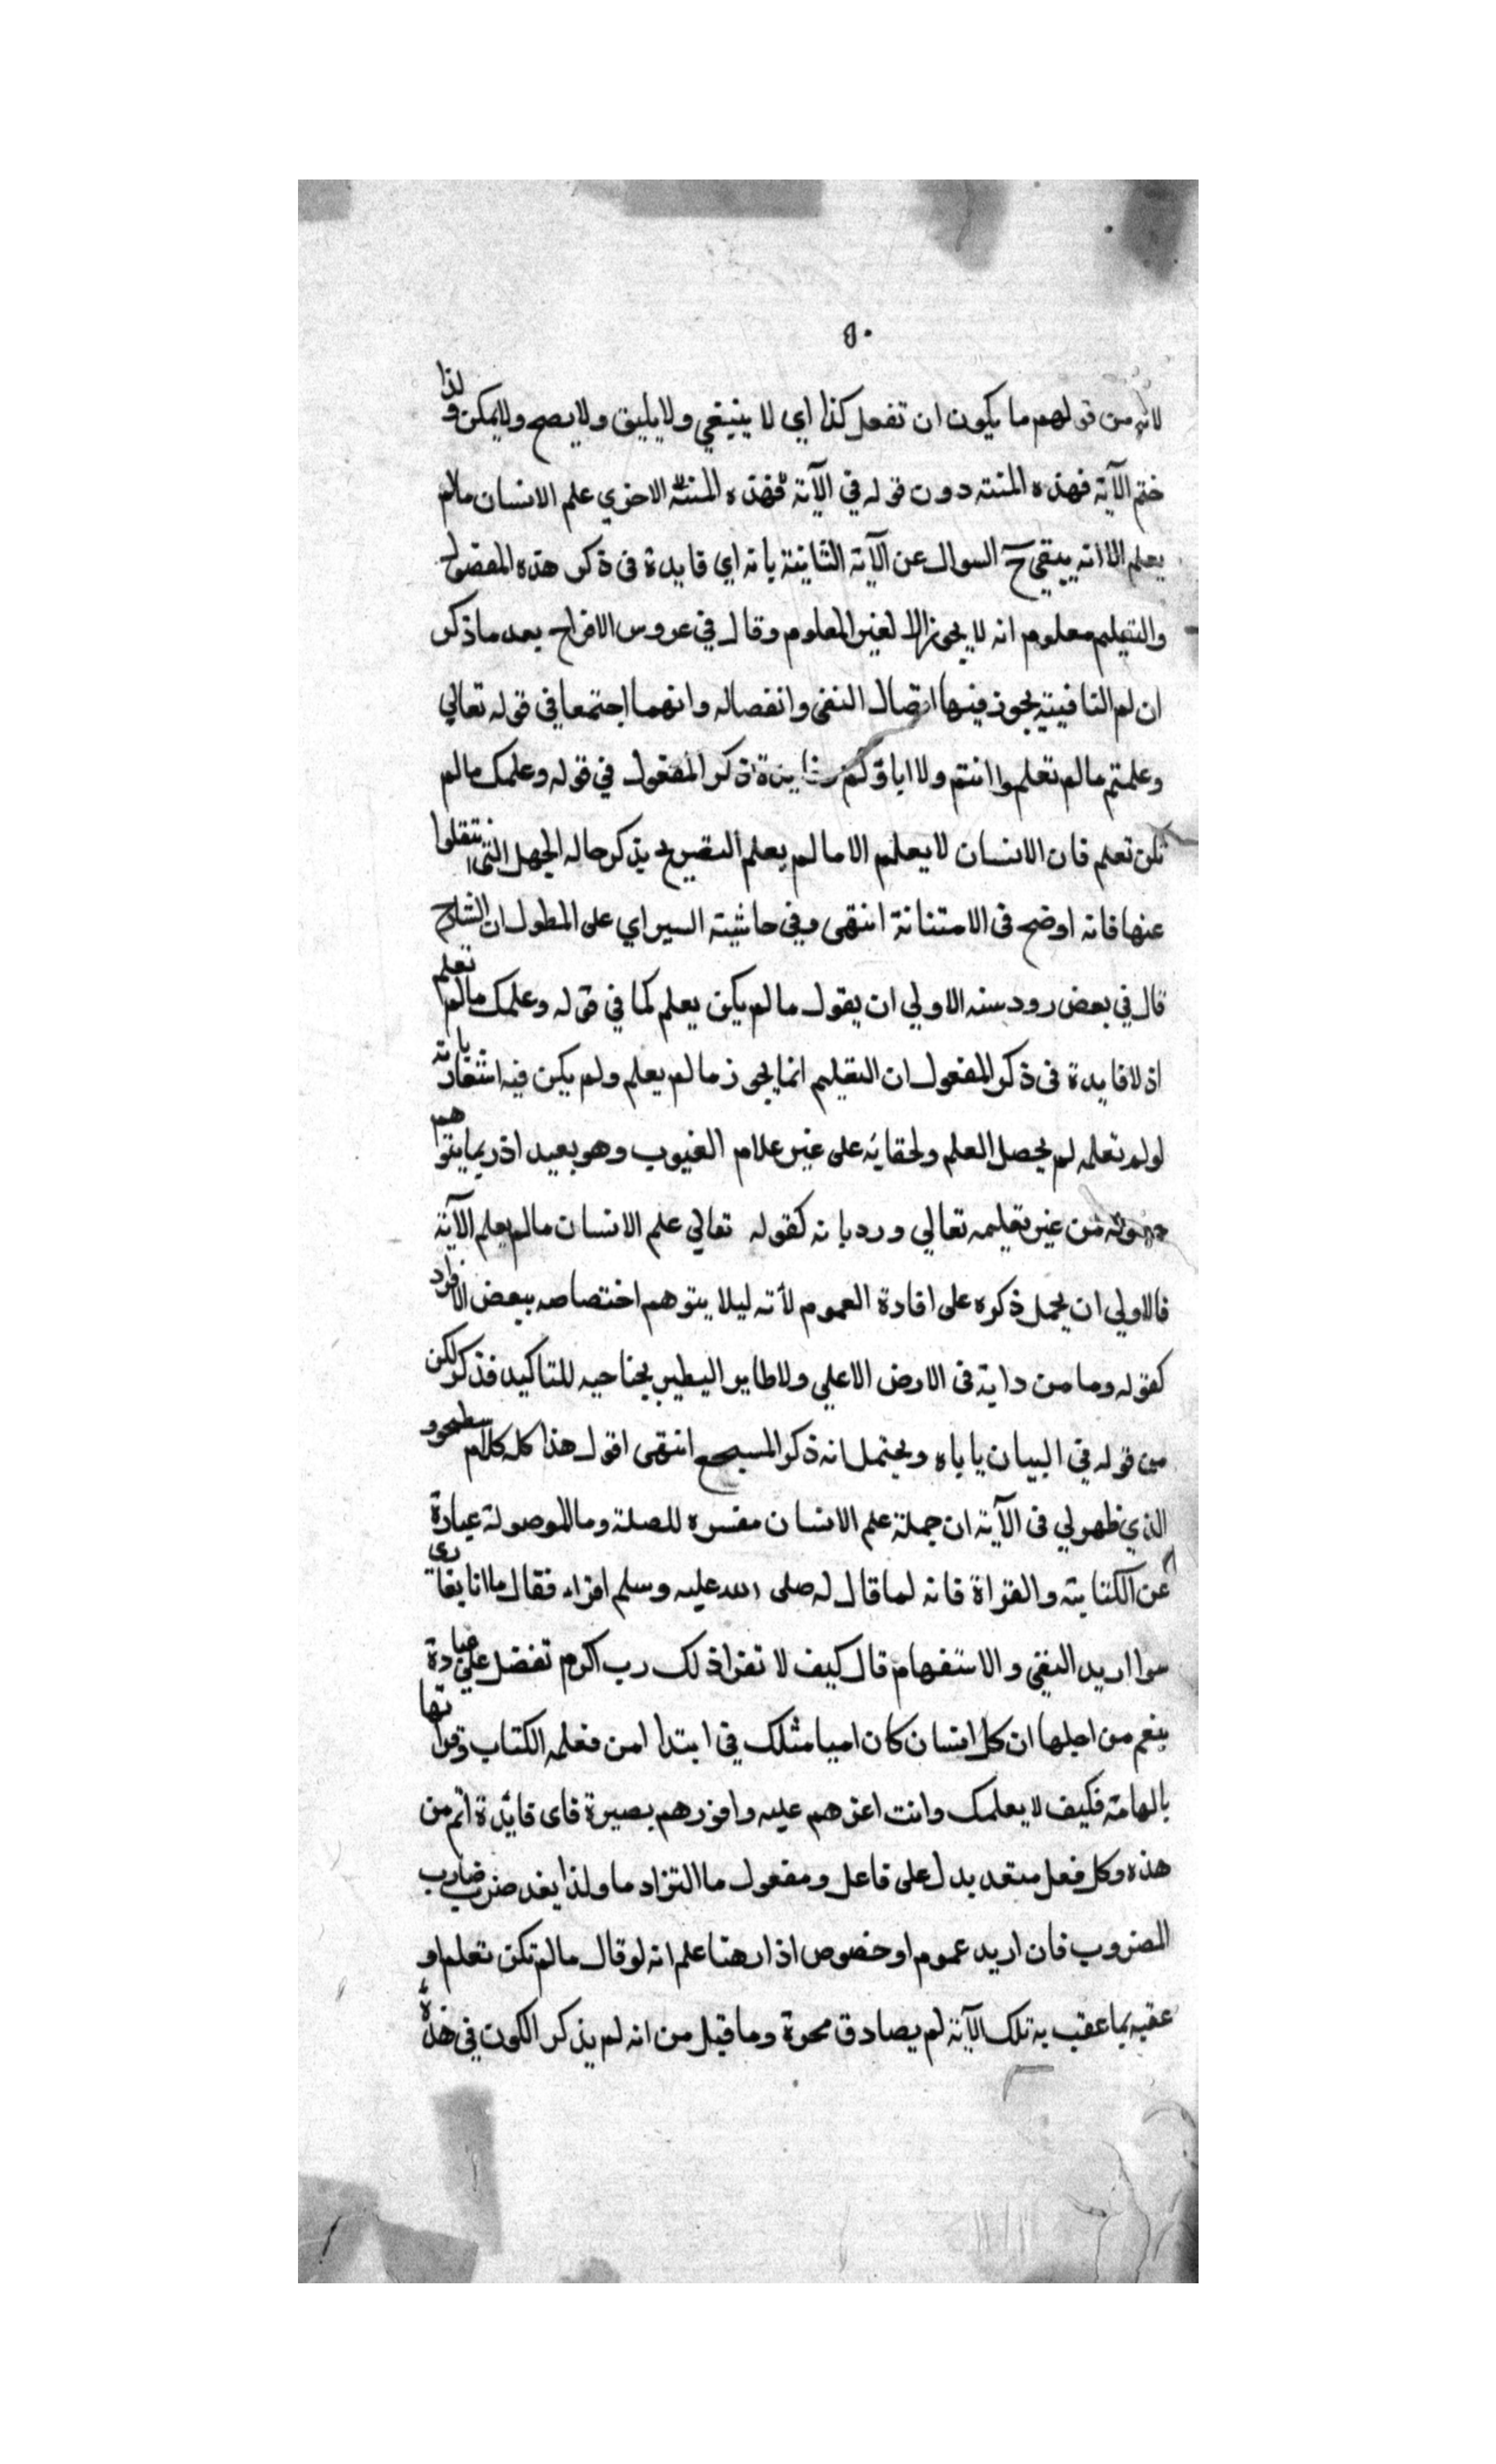 ٥٠
لانه من قولهم ما يكون ان تفعل كذا اي لا ينبغي ولا يليق ولا يصح ولا يمكن ولذا
ختم الآية فهذه المنته دون قوله في الآية فهذه المنته الاخري علم الانسان مالم
يعلم الا انه يبقي ح السوال عن الآية الثانية بانه اي فايدة في ذكر هذه المفعول
والتعليم معلوم انه لا يجوز الا لغير المعلوم وقال في عروس الافراح بعد ما ذكر
ان لم النافية يجوز فيها اتصال النفي وانفصاله وانهما اجتمعا في قوله تعالي
وعلمتم مالم تعلموا انتم ولا اباؤكم ذكر المفعول في قوله وعلمك مالم
تكن تعلم فان الانسان لا يعلم الا مالم يعلم التصريح بذكر حاله الجهل التي انتقلوا
عنها فانه اوضح في الامتنانة انتهى وفي حاشية السيراي على المطول ان الشارح
قال في بعض رود سنه الاولي ان يقول مالم يكن يعلم كما في قوله وعلمك مالم تعلم
اذ لا فايدة في ذكر المفعول ان التعليم انما يجوز مالم يعلم ولم يكن فيه اشعار بانه
لو لم تعلمه لم يحصل العلم ولحقايه على غير علام الغيوب وهو بعيد اذ ربما يتوهم
من غير تعليمه تعالي ورد بانه كقوله تعالي علم الانسان مالم يعلم الآية
فالاولي ان يحمل ذكره على افادة العموم لأنه ليلا يتوهم اختصاصه ببعض الافراد
كقوله وما من دابة في الارض الاعلي ولا طاير اليطير بجناحيه للتاكيد فذكر لكن
من قوله في البيان ياباه ويحتمل انه ذكر المسبحع انتهى اقول هذا كله كلام
الذي ظهر لي في الآية ان جملة علم الانسان مفسره للصلة وما الموصولة عبارة
عن الكتابة والقراة فانه لما قال له صلى الله عليه وسلم اقراء فقال ما انا بقارى
سوا اريد النفي والاستفهام قال كيف لا تقرا ذلك رب اكرم تفضل على عبادة
بنعم من اجلها ان كل انسان كان اميا مثلك في ابتدا امن فعلمه الكتاب وقراتها
بالهامه فكيف لا يعلمك وانت اعزهم عليه وافورهم بصيرة فاى فايدة اتم من
هذه وكل فعل متعد يدل على فاعل ومفعول ما التزاد ما ولذا يفد ضرب ضارب
المضروب فان اريد عموم او خصوص اذا رهنا علم انه لو قال مالم تكن تعلم او
عقبه بما عقب به تلك الآية لم يصادق محوة وما قيل من انه لم يذكر الكون في هذه